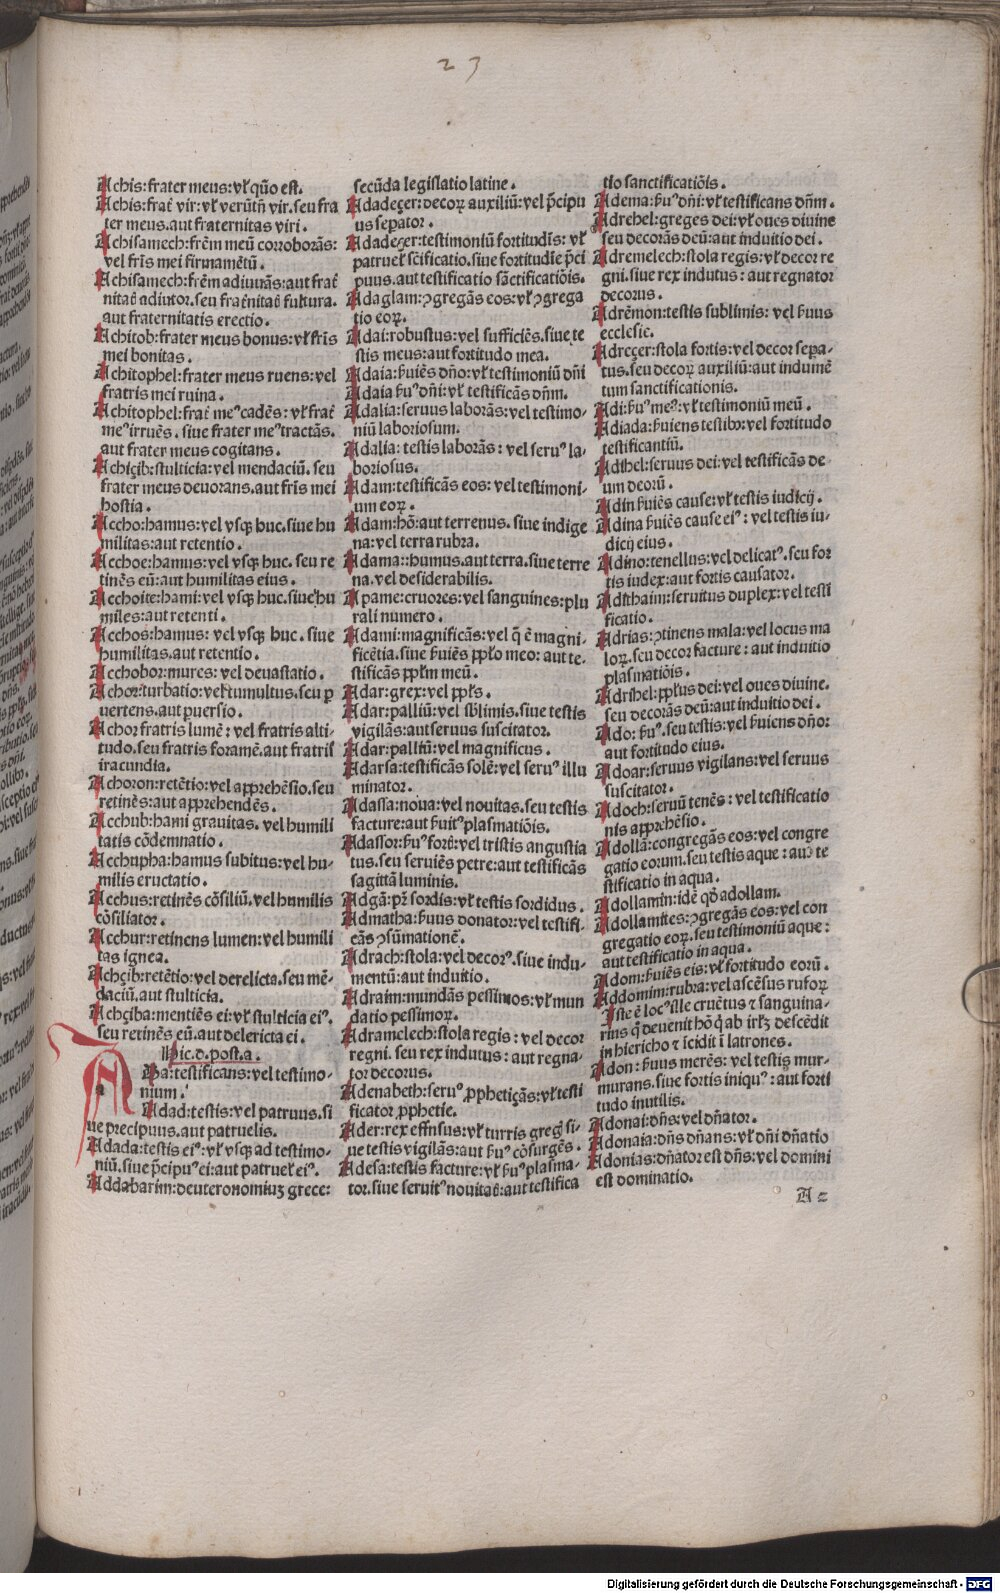 23
Achis:frater meus:vł quō est.
Achis:frat᷑ vir:vł verūtñ vir.seu fra
ter meus.aut fraternitas viri.
Achisamech:frēm meū corroborās:
vel fris̄ mei firmamētū.
Achisamech:frēm adiuuās:aut frat᷑
nitat᷑ adiutor.seu frat᷑nitat᷑ fultura.
aut fraternitatis erectio.
Achitob:frater meus bonus:vł fris̄
mei bonitas.
Achitophel:frater meus ruens:vel
fratris mei ruina.
Achitophel:frat᷑ meꝰ cadēs:vł frat᷑
meꝰ irruēs.siue frater meꝰ tractās.
aut frater meus cogitans.
Achiçib:stulticia:vel mendaciū.seu
frater meus deuorans.aut fris̄ mei
hostia.
Accho:hamus:vel vsqꝫ huc.siue hu
militas:aut retentio.
Acchoe:hamus:vel vsqꝫ huc.seu re
tinēs eū:aut humilitas eius.
Acchoite:hami:vel vsqꝫ huc.siue hu
miles:aut retenti.
Acchos:hamus: vel vsqꝫ huc.siue
humilitas.aut retentio.
Acchobor:mures:vel deuastatio.
Achor:turbatio:vel tumultus.seu ꝑ
uertens.aut ꝑuersio.
Achor fratris lumē:vel fratris alti-
tudo.seu fratris foramē.aut fratris
iracundia.
Achoron:retētio:vel apprehēsio.seu
retinēs:aut apprehendēs.
Acchub:hami grauitas.vel humili
tatis cōdemnatio.
Acchupha:hamus subitus:vel hu-
milis eructatio.
Acchus:retinēs cōsiliū.vel humilis
cōsiliator.
Acchur:retinens lumen:vel humili
tas ignea.
Achçib:retētio:vel derelicta.seu mē-
daciū.aut stulticia.
Achçiba:mentiēs ei:vł stulticia eiꝰ.
seu retinēs eū.aut delericta ei.
Hic.d.post.a.
A
Da:testificans:vel testimo-
nium.
Adad:testis:vel patruus.si
ue precipuus.aut patruelis.
Adada:testis eiꝰ:vł vsqꝫ ad testimo-
niū.siue p̄cipuꝰ ei:aut patrueł eiꝰ.
Addabarim:deuteronomiuꝫ grece:
secūda legislatio latine.
Adadeçer:decoꝝ auxiliū:vel p̄cipu
us sepator.
Adadeçer:testimoniū fortitudis̄:vł
patrueł scificatio.siue fortitudie p̄ci
puus.aut testificatio sāctificatiōis.
Adaglam:ꝯgregās eos:vł ꝯgrega
tio eoꝝ.
Adai:robustus:vel sufficiēs.siue te
stis meus:aut fortitudo mea.
Adaia:ẜuiēs dño:vł testimoniū dñi
Adaia ẜuꝰ dñi:vł testificās dñm.
Adalia:seruus laborās:vel testimo-
niū laboriosum.
Adalia: testis laborās: vel seruꝰ la-
boriosus.
Adam:testificās eos: vel testimoni-
um eoꝝ.
Adam:hō:aut terrenus.siue indige
na:vel terra rubra.
Adama::humus.aut terra.siue terre
na.vel desiderabilis.
Apame:cruores:vel sanguines:plu
rali numero.
Adami:magnificās:vel q̄ ē magni-
ficētia.siue ẜuiēs ppło meo:aut te-
stificās ppłm meū.
Adar:grex:vel ppłs.
Adar:palliū:vel sblimis.siue testis
vigilās:aut seruus suscitator.
Adar:palliū:vel magnificus.
Adarsa:testificās solē:vel seruꝰ illu
minator.
Adassa:noua:vel nouitas.seu testis
facture:aut ẜuitꝰ plasmatiōis.
Adassor:ẜuꝰ fort᷑:vel tristis angustia
tus.seu seruiēs petre:aut testificās
sagittā luminis.
Adgā:pr̄ sordis:vł testis sordidus.
Admatha:ẜuus donator:vel testifi-
cās ꝯsūmationē.
Adrach:stola:vel decorꝰ.siue indu-
mentū:aut induitio.
Adraim:mundās pessimos:vł mun
datio pessimoꝝ.
Adramelech:stola regis: vel decor
regni.seu rex indutus: aut regna-
tor decorus.
Adenabeth:seruꝰ ꝓphetiçās:vł testi
ficator ꝓphetie.
Ader:rex effusus:vł turris greg᷑ si-
ue testis vigilās:aut ẜuꝰ cōsurgēs.
Adesa:testis facture:vł ẜuꝰ plasma-
tor.siue seruitꝰ nouitat᷑:aut testifica
tio sanctificatiōis.
Adema:ẜuꝰ dñi:vł testificans dñm.
Adrehel:greges dei:vł oues diuine
seu decorās deū:aut induitio dei.
Adremelech:stola regis:vł decor re
gni.siue rex indutus: aut regnator
decorus.
Adrēmon:testis sublimis: vel ẜuus
ecclesie.
Adreçer:stola fortis:vel decor sepa-
tus.seu decoꝝ auxiliū:aut indumē
tum sanctificationis.
Adi:ẜuꝰ meꝰ:vł testimoniū meū.
Adiada:ẜuiens testibꝫ:vel fortitudo
testificantiū.
Adihel:seruus dei:vel testificās de
um deorū.
Adin ẜuiēs cause:vł testis iudicij.
Adina ẜuiēs cause eiꝰ: vel testis iu-
dicij eius.
Adino:tenellus:vel delicatꝰ.seu for
tis iudex:aut fortis causator.
Aditthaim:seruitus duplex:vel testi
ficatio.
Adrias:ꝯtinens mala:vel locus ma
loꝝ.seu decor facture: aut induitio
plasmatiōis.
Adrihel:ppłus dei:vel oues diuine.
seu decorās deū:aut induitio dei.
Ado:ẜuꝰ.seu testis:vel ẜuiens dño:
aut fortitudo eius.
Adoar:seruus vigilans:vel seruus
suscitator.
Adoch:seruū tenēs: vel testificatio
nis apprehēsio.
Adollā:congregās eos:vel congre
gatio eorum.seu testis aque: aut te
stificatio in aqua.
Adollamin:idē qđ adollam.
Adollamites:ꝯgregās eos:vel con
gregatio eoꝝ.seu testimoniū aque:
aut testificatio in aqua.
Adom:ẜuiēs eis:vł fortitudo eorū.
Addomim:rubra:vel ascēsus rufoꝝ
Iste ē locꝰ ille cruētus ⁊ sanguina-
rius q̄ deuenit hō q̄ ab irłꝫ descēdit
in hiericho ⁊ icidit ī latrones.
Adon: ẜuus merēs: vel testis mur-
murans.siue fortis iniquꝰ:aut forti
tudo inutilis.
Adonai:dñs:vel dñator.
Adonaia:dñs dñans:vł dñi dñatio
Adonias:dñator est dñs:vel domini
est dominatio.
A 2
Digitalisierung gefördert durch die Deutsche Forschungsgemeinschaft - DFG